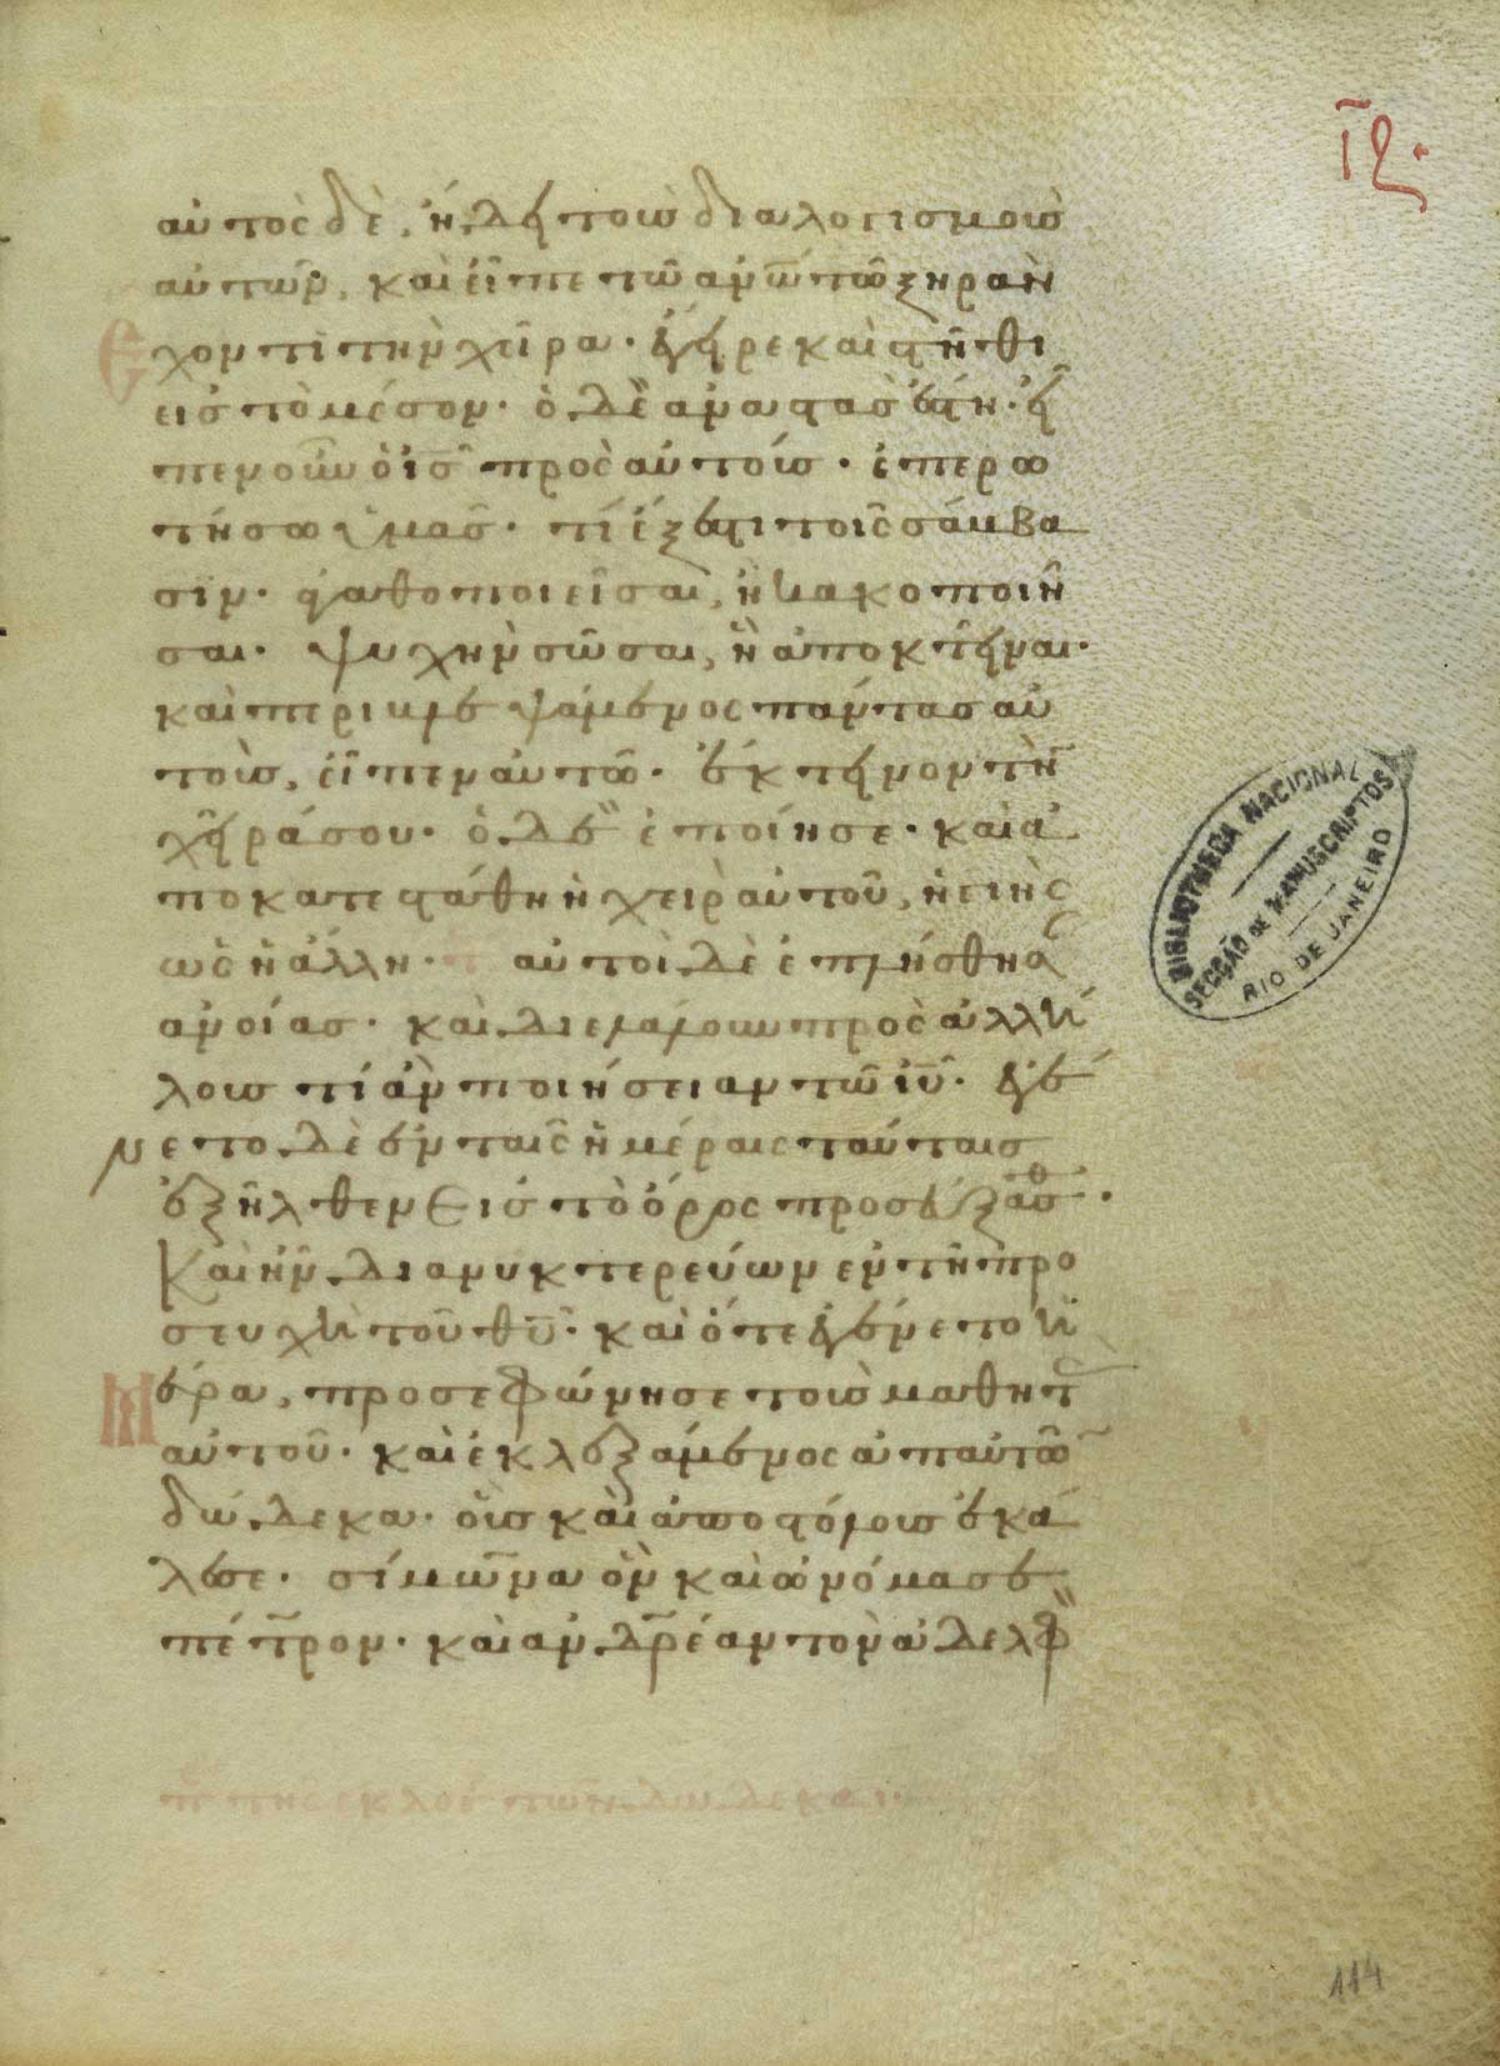 ιϛ·
αὐτὸς δὲ, ἤδει τοὺς διαλογισμοὺς
αὐτῶν, καὶ εἶπε τῶ ἀν̅ω̅ τῶ ξηρὰν
ἔχοντι τὴν χεῖρα· ἔγειρε καὶ στῆθι
εἰς τὸ μέσον· ὁ δὲ ἀναστὰς ἔστη· εἶ
πεν οὖν ὁ ι̅ς̅ πρὸς αὐτούς· ἐπερω
τήσω ὑμᾶς· τί ἔξεστι τοῖς σάμβα
σιν· ἀγαθοποιεῖσαι, ἢ κακοποιῆ
σαι· ψυχὴν σῶσαι, ἢ ἀποκτεῖναι·
καὶ περιβλεψάμενος πάντας αὐ
τοὺς, εἶπεν αὐτῶ· ἔκτεινον τὴν
χεῖρά σου· ὁ δὲ ἐποίησε· καὶ ἀ
ποκατεστάθη ἡ χεὶρ αὐτοῦ, ὑγιὴς
ὡς ἡ ἄλλη· αὐτοὶ δὲ ἐπλήσθησαν
ἀνοίας· καὶ διελάλουν πρὸς ἀλλή
λους τί ἂν ποιήσειαν τῶ ι̅υ̅· ἐγέ
νετο δὲ ἐν ταῖς ἡμέραις ταύταις
ἐξῆλθεν εἰς τὸ ὄρος προσεύξασθ·
Καὶ ἦν διανυκτερεύων ἐν τῆ προ
σευχῆ τοῦ θ̅υ̅· καὶ ὅτε ἐγένετο ἡ
μέρα, προσεφώνησε τοὺς μαθητ
αὐτοῦ· καὶ ἐκλεξάμενος ἀπ αὐτῶ
δώδεκα· οὓς καὶ ἀποστόλους ἐκά
λεσε· σίμωνα ὃν καὶ ὠνόμασε
πέτρον· καὶ ἀνδρέαν τὸν ἀδελφ
τῆς ἐκλογ τῶν δώδεκα·
BIBLIOTHECA NACIONAL
SECÇÃO DE MANUSCRIPTOS
RIO DE JANEIRO
114